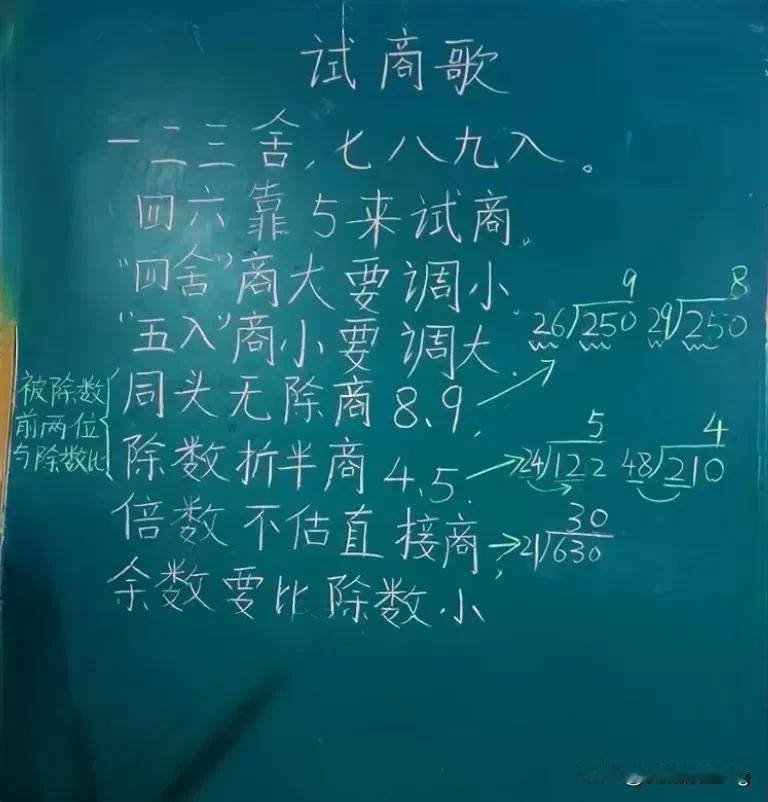 试商歌
一二三舍，七八九入。
四六靠5来试商。
"四舍"商大要调小
"五入"商小要调大.
同头无除商8、9,
除数折半商4、5.
倍数不估直接商,
余数要比除数小
被除数
前两位
与除数比
9 8
26√250 29√250
5 4
24√122 48√210
30
21√630